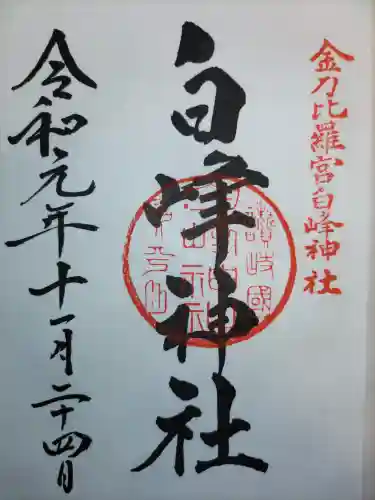 金刀比羅宮白峰神社
白峰神社
讃岐國
令和元年十一月二十四日